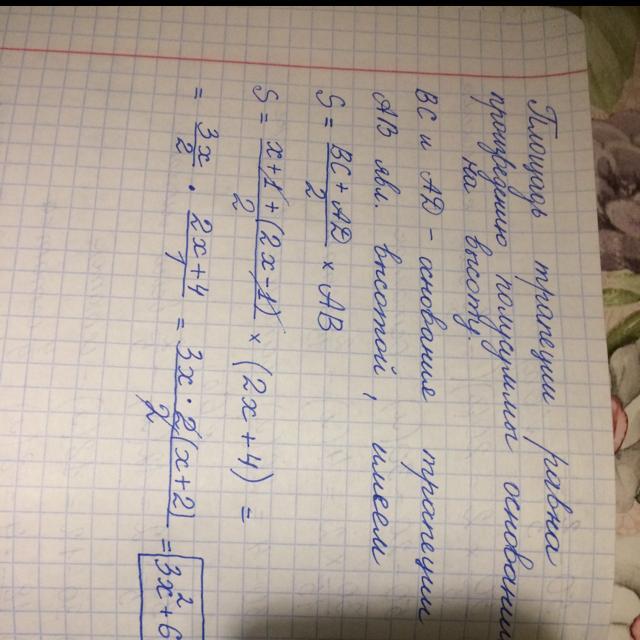 Площадь трапеции равна
произведению полусуммы основани
на высоту.
BC и AD - основание трапеции
AB явл. высотой, имеем
S = (BC + AD)/2 × AB
S = (x + 1 + (2x - 1))/2 × (2x + 4) =
= 3x/2 · (2x + 4)/1 = (3x · 2(x + 2))/2 = 3x² + 6